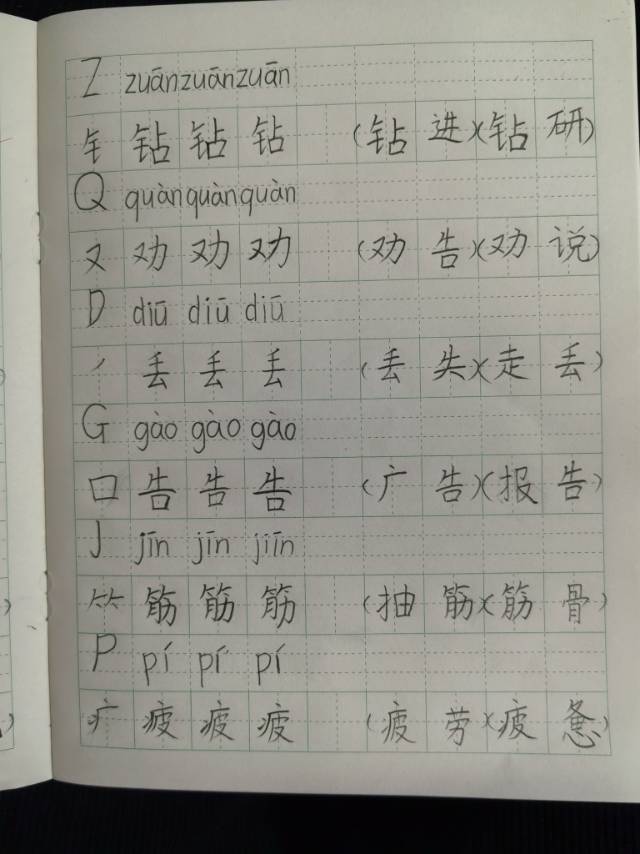 Z zuānzuānzuān
钅 钻 钻 钻 (钻进)(钻研)
Q quànquànquàn
又 劝 劝 劝 (劝告)(劝说)
D diū diū diū
丿 丢 丢 丢 (丢失)(走丢)
G gào gào gào
口 告 告 告 (广告)(报告)
J jīn jīn jiīn
⺮ 筋 筋 筋 (抽筋)(筋骨)
P pí pí pí
疒 疲 疲 疲 (疲劳)(疲惫)